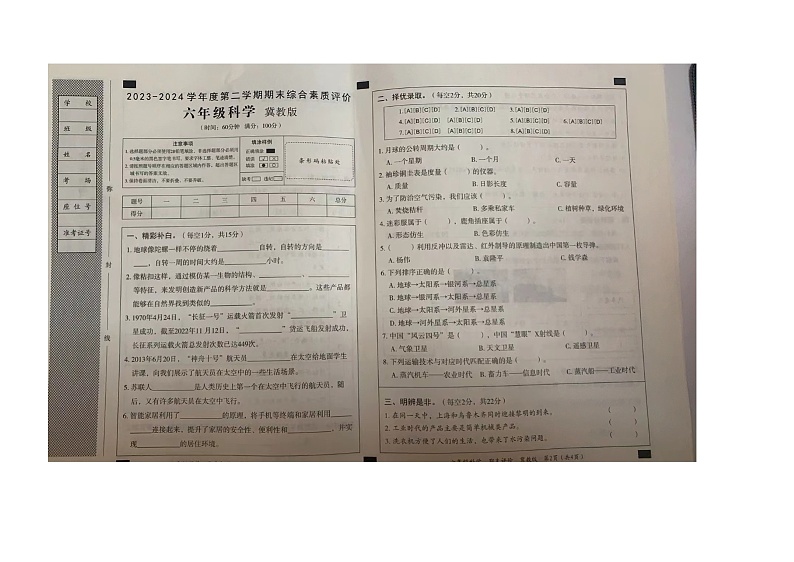 学 校
班 级
姓 名
考 场
座 位 号
准考证号
弥
封
线
2023-2024 学年度第二学期期末综合素质评价
六年级科学 冀教版
(时间：60分钟 满分：100分)
注意事项
填涂样例
正确填涂
错填
缺考
违纪
条形码粘贴处
题号 一 二 三 四 五 六 总分
得分
一、精彩补白。(每空1分，共15分)
1. 地球像陀螺一样不停的绕着________自转，自转的方向是________
________，自转一周的时间大约是________小时。
2. 像粘扣这样，通过模仿某一生物的结构、________、________
等特征，来发明创造新产品的科学方法就是________。这些产品都
能够在自然界找到类似的________。
3. 1970年4月24日，“长征一号”运载火箭首次发射“________”卫
星成功，截至2022年11月12日，“________”货运飞船发射成功，
长征系列运载火箭总发射次数已达449次。
4. 2013年6月20日，“神舟十号”航天员________在太空给地面学生
讲课，向我们展示了航天员在太空中的一些生活场景。
5. 苏联人________是人类历史上第一个在太空中飞行的航天员，随
后，又有许多航天员在太空中飞行。
6. 智能家居利用了________的原理，将手机等终端和家居利用____
________连接起来，提升了家居的安全性、便利性和________，并实
现________的居住环境。
二、择优录取。(每空2分，共20分)
1. [A][B][C][D] 2. [A][B][C][D] 3. [A][B][C][D]
4. [A][B][C][D] [A][B][C][D] 5. [A][B][C][D] 6. [A][B][C][D]
7. [A][B][C][D] [A][B][C][D] 8. [A][B][C][D]
1. 月球的公转周期大约是( )。
A. 一个星期 B. 一个月 C. 一天
2. 袖珍铜圭表是度量( )的仪器。
A. 质量 B. 日影长度 C. 容量
3. 为了防治空气污染，我们应该( )。
A. 焚烧秸秆 B. 多乘私家车 C. 植树种草，绿化环境
4. 迷彩服属于( )，鹿角插座属于( )。
A. 形态仿生 B. 色彩仿生
5. ( )利用反冲以及雷达、红外制导的原理制造出中国第一枚导弹。
A. 杨伟 B. 袁隆平 C. 钱学森
6. 下列排序正确的是( )。
A. 地球→太阳系→银河系→总星系
B. 地球→银河系→太阳系→总星系
C. 地球→河外星系→太阳系→总星系
7. 中国“风云四号”是( )，中国“慧眼”X射线是( )。
A. 气象卫星 B. 天文卫星 C. 遥感卫星
8. 下列运输技术与对应时代匹配正确的是( )。
A. 蒸汽机车——农业时代 B. 畜力车——信息时代 C. 蒸汽船——工业时代
三、明辨是非。(每空2分，共22分)
1. 在同一天中，上海和乌鲁木齐同时迎接黎明的到来。 ( )
2. 工业时代的产品主要是简单机械类产品。 ( )
3. 洗衣机方便了人们的生活，也带来了水污染问题。 ( )